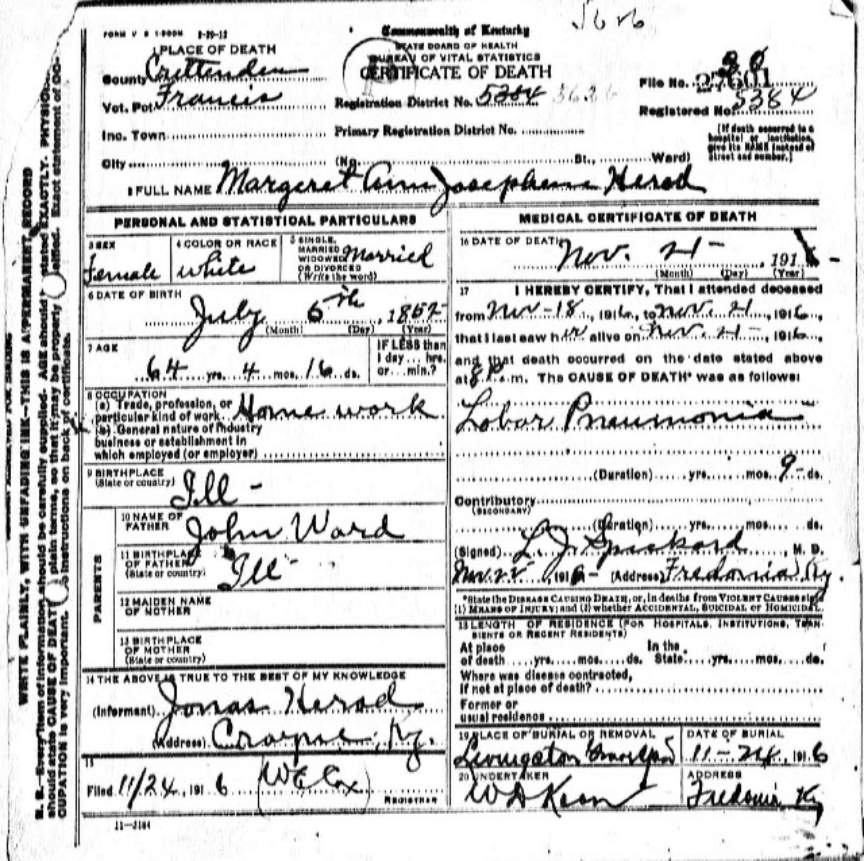 5636
FORM V S 1-500M 8-19-12
Commonwealth of Kentucky
STATE BOARD OF HEALTH
BUREAU OF VITAL STATISTICS
CERTIFICATE OF DEATH
1 PLACE OF DEATH
County Crittenden
Vot. Pct Francis
Inc. Town
City (No. St., Ward)
Registration District No. 5384 3636
Primary Registration District No.
File No. 27601
Registered No. 5384
[If death occurred in a hospital or institution, give its NAME instead of street and number.]
2 FULL NAME Margeret Ann Josephene Herod
PERSONAL AND STATISTICAL PARTICULARS
3 SEX
Female
4 COLOR OR RACE
white
5 SINGLE, MARRIED WIDOWED OR DIVORCED (Write the word) Married
6 DATE OF BIRTH
July 5th, 1852
(Month) (Day) (Year)
7 AGE
64 yrs. 4 mos. 16 ds.
IF LESS than 1 day... hrs. or... min.?
8 OCCUPATION
(a) Trade, profession, or particular kind of work Home work
(b) General nature of industry business or establishment in which employed (or employer)
9 BIRTHPLACE
(State or country) Ill -
PARENTS
10 NAME OF FATHER John Ward
11 BIRTHPLACE OF FATHER (State or country) Ill -
12 MAIDEN NAME OF MOTHER
13 BIRTHPLACE OF MOTHER (State or country)
14 THE ABOVE IS TRUE TO THE BEST OF MY KNOWLEDGE
(Informant) Jonas Herod
(Address) Ky.
15
Filed 11/24, 1916 W E Cox
REGISTRAR
11-3184
MEDICAL CERTIFICATE OF DEATH
16 DATE OF DEATH Nov. 21 - , 191
(Month) (Day) (Year)
17 I HEREBY CERTIFY, That I attended deceased
from Nov-18, 1916, to Nov. 21, 1916,
that I last saw her alive on Nov. 21 -, 1916,
and that death occurred on the date stated above
at 8 P. m. The CAUSE OF DEATH* was as follows:
Lobar Pneumonia
(Duration) yrs. mos. 9 - ds.
Contributory
(SECONDARY)
(Duration) yrs. mos. ds.
(Signed) L. J. Spickard, M. D.
Nov. 22, 1916 - (Address) Fredonia Ky.
*State the DISEASE CAUSING DEATH, or, in deaths from VIOLENT CAUSES state
(1) MEANS OF INJURY; and (2) whether ACCIDENTAL, SUICIDAL or HOMICIDAL.
18 LENGTH OF RESIDENCE (FOR HOSPITALS, INSTITUTIONS, TRANSIENTS OR RECENT RESIDENTS)
At place of death yrs. mos. ds. In the State yrs. mos. ds.
Where was disease contracted,
If not at place of death?
Former or
usual residence
19 PLACE OF BURIAL OR REMOVAL
Livingston
DATE OF BURIAL
11-24, 1916
20 UNDERTAKER
W D Koon
ADDRESS
Fredonia Ky
WRITE PLAINLY, WITH UNFADING INK—THIS IS A PERMANENT RECORD
N. B.—Every item of information should be carefully supplied. AGE should be stated EXACTLY. PHYSICIANS
should state CAUSE OF DEATH in plain terms, so that it may be properly classified. Exact statement of OCCUPATION is very important. See instructions on back of certificate.